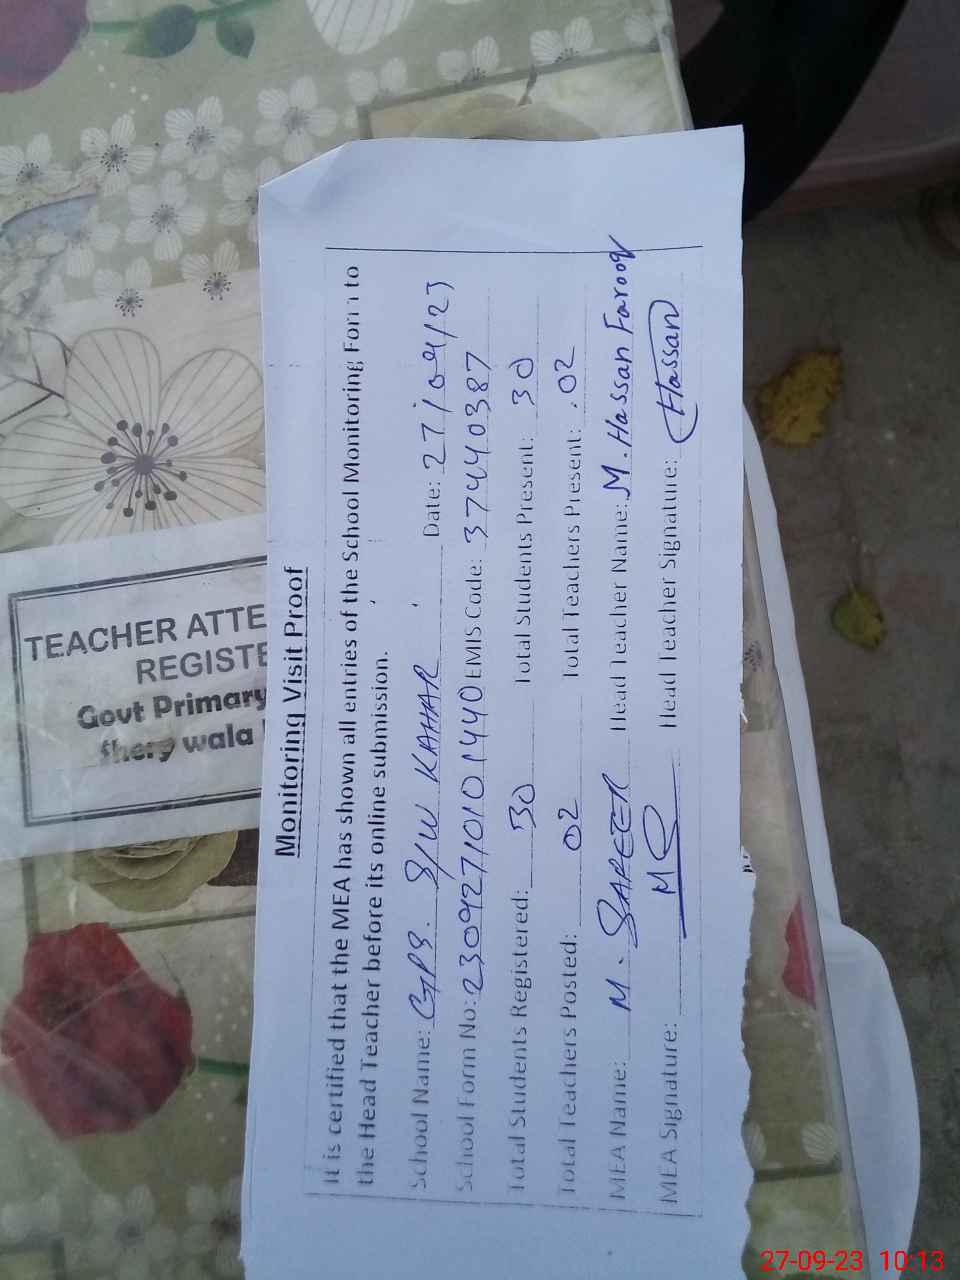 Monitoring Visit Proof
It is certified that the MEA has shown all entries of the School Monitoring Form to
the Head Teacher before its online submission.
School Name: GPS. S/W KAHAR Date: 27/09/23
School Form No: 23092710101440 EMIS Code: 37440387
Total Students Registered: 30 Total Students Present: 30
Total Teachers Posted: 02 Total Teachers Present: 02
MEA Name: M. SAFEER Head Teacher Name: M. Hassan Farooq
MEA Signature: MS Head Teacher Signature: Hassan
TEACHER ATTE
REGISTE
Govt Primary
wala
27-09-23 10:13